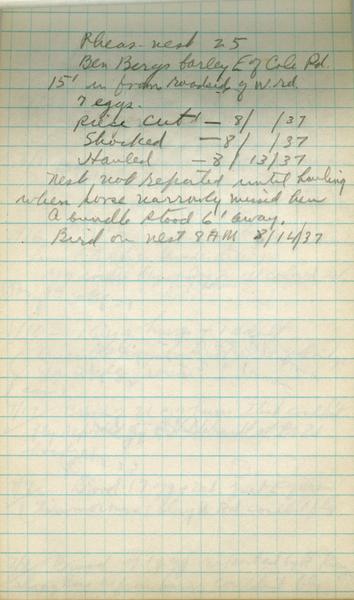 Pheas. nest 25
Ben Bergs barley E of Cole Rd.
15' in from roadside of W. rd.
7 eggs.
Cut - 8/ /37
Shocked - 8/ /37
Hauled - 8/13/37
Nest not reported until hauling
when horse narrowly missed hen
A bundle stood 6' away.
Bird on nest 8 AM 8/14/37